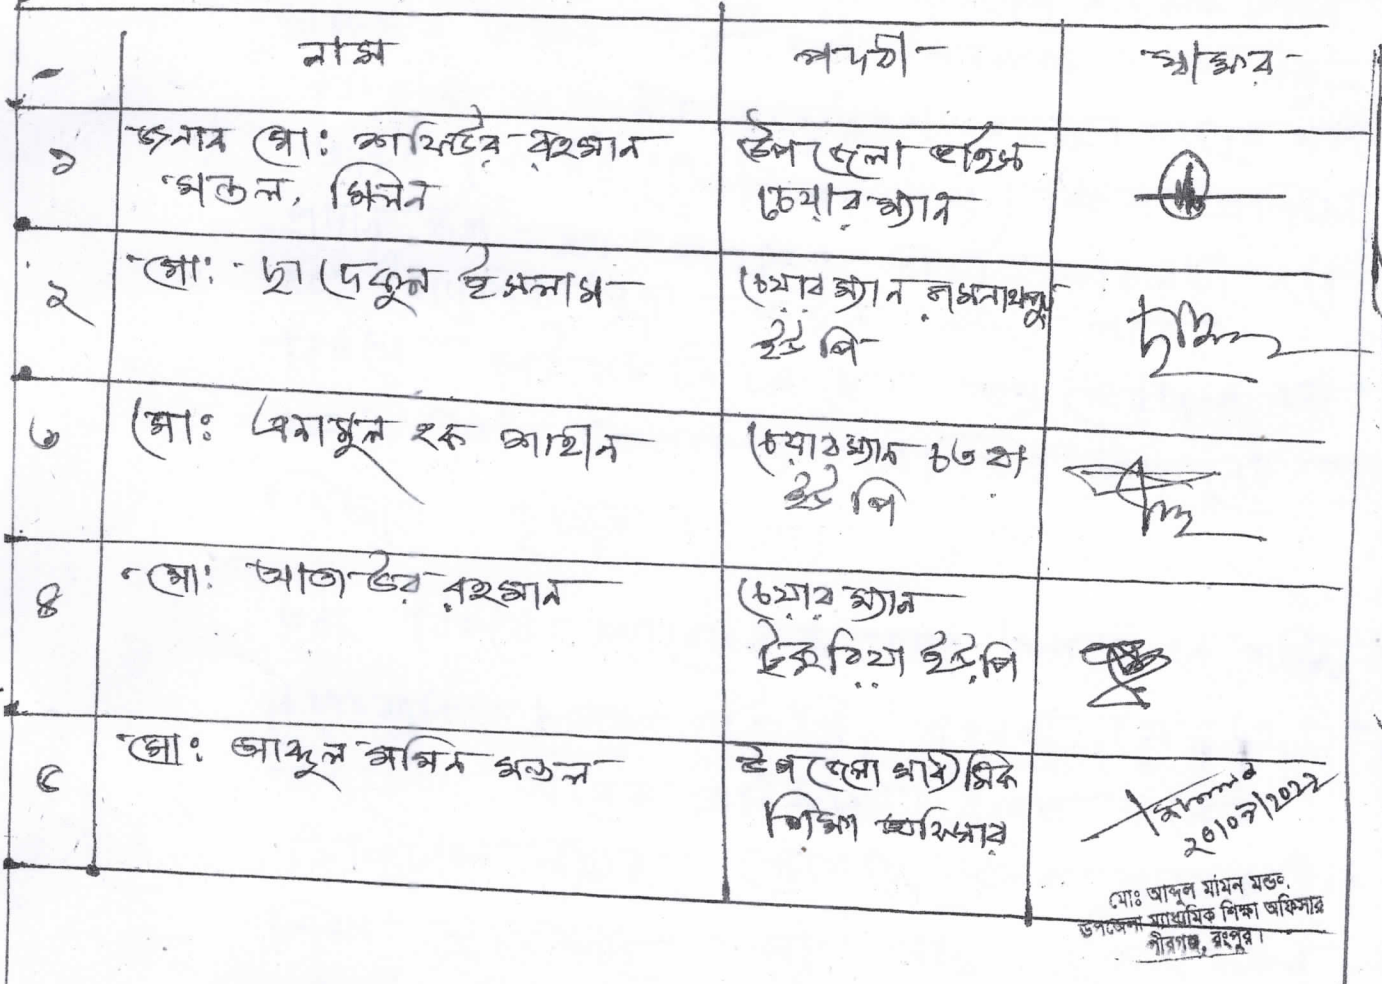 নাম পদবী স্বাক্ষর
১ জনাব মো: শফিউর রহমান উপজেলা ভাইস
মন্ডল, মিলন চেয়ারম্যান
২ মো: ছাদেকুল ইসলাম চেয়ারম্যান রামনাথপুর
ইউ পি
৩ মো: এনামুল হক শাহীন চেয়ারম্যান চতরা
ইউ পি
৪ মো: আতাউর রহমান চেয়ারম্যান
টুকুরিয়া ইউ,পি
৫ মো: আব্দুল মমিন মন্ডল উপজেলা মাধ্যমিক
শিক্ষা অফিসার
২০/০৭/২০২২
মোঃ আব্দুল মমিন মন্ডল
উপজেলা মাধ্যমিক শিক্ষা অফিসার
পীরগঞ্জ, রংপুর।